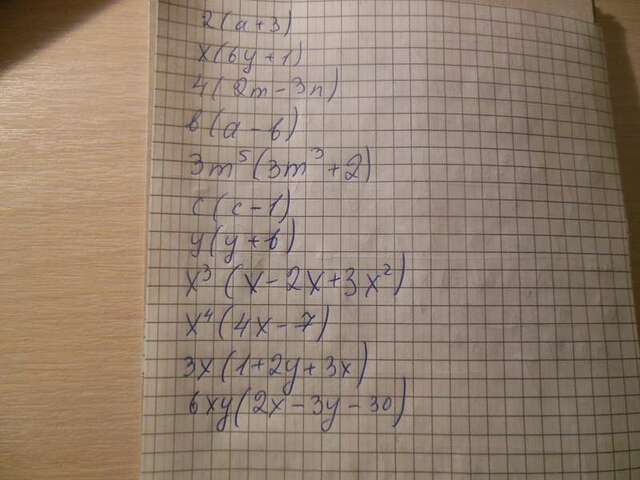 2(a+3)
x(6y+1)
4(2m-3n)
b(a-b)
3m⁵(3m³+2)
c(c-1)
y(y+b)
x³(x-2x+3x²)
x⁴(4x-7)
3x(1+2y+3x)
6xy(2x-3y-30)